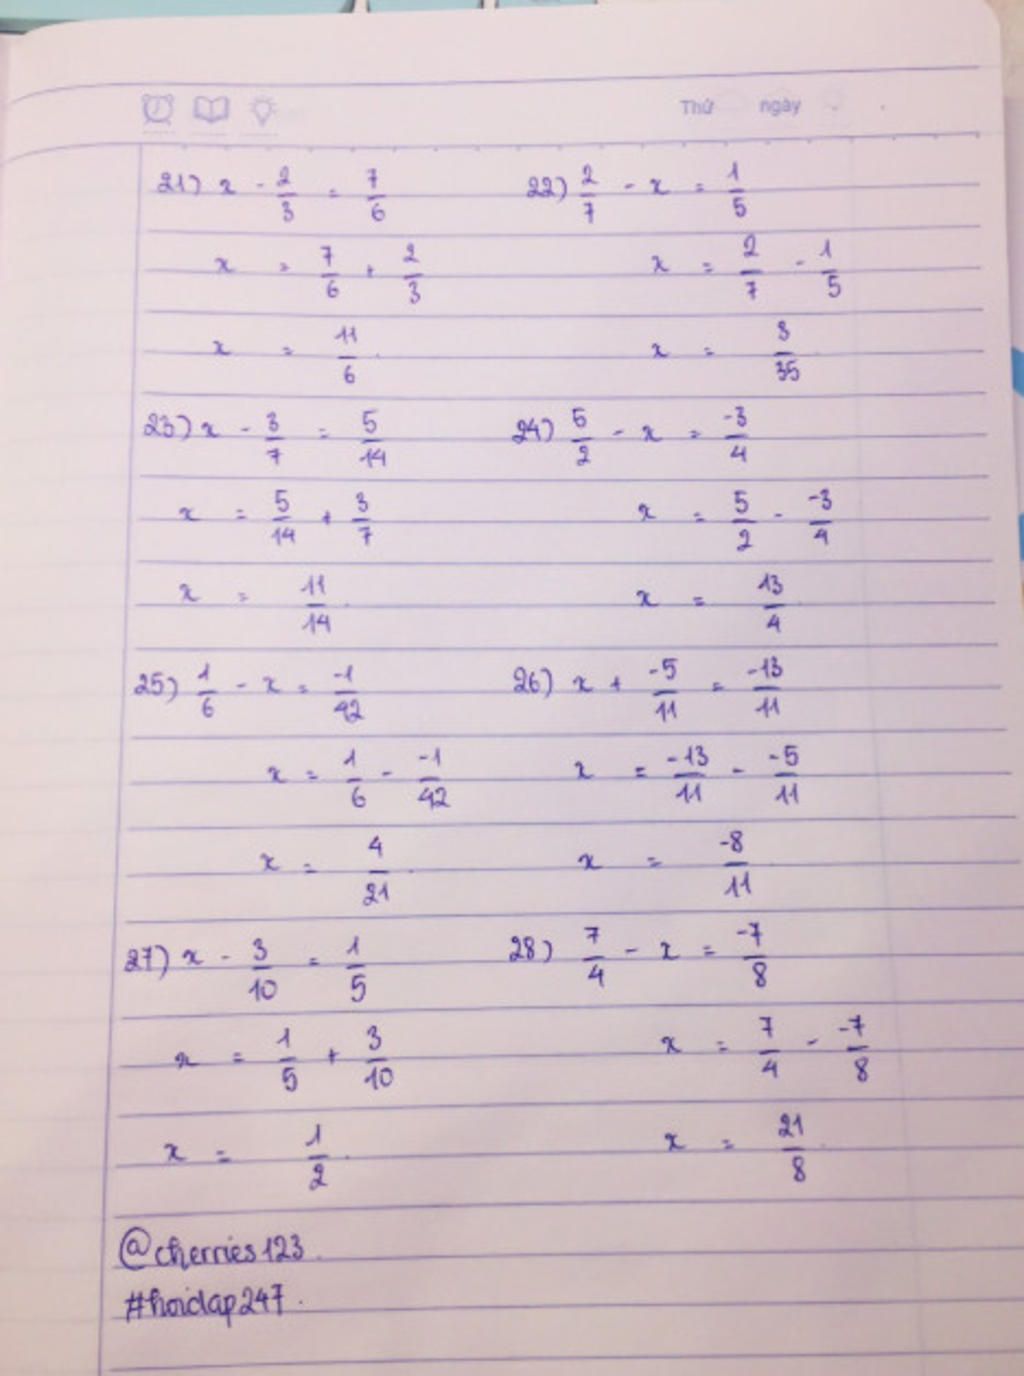 Thứ ngày
21) x - 2/3 = 7/6
x = 7/6 + 2/3
x = 11/6
22) 2/7 - x = 1/5
x = 2/7 - 1/5
x = 3/35
23) x - 3/7 = 5/14
x = 5/14 + 3/7
x = 11/14
24) 5/2 - x = -3/4
x = 5/2 - -3/4
x = 13/4
25) 1/6 - x = -1/42
x = 1/6 - -1/42
x = 4/21
26) x + -5/11 = -13/11
x = -13/11 - -5/11
x = -8/11
27) x - 3/10 = 1/5
x = 1/5 + 3/10
x = 1/2
28) 7/4 - x = -7/8
x = 7/4 - -7/8
x = 21/8
@cherries123.
#hoidap247.